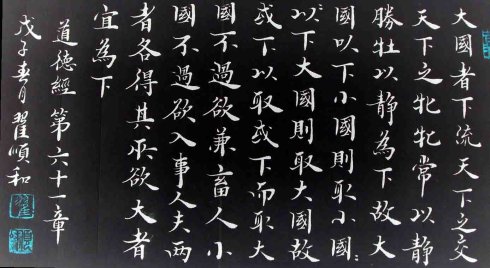 大國者下流天下之交
天下之牝牝常以靜
勝牡以靜為下故大
國以下小國則取小國〻
以下大國則取大國故
或下以取或下而取大
國不過欲兼畜人小
國不過欲入事人夫兩
者各得其所欲大者
宜為下
道德經第六十一章
戊子春月翟順和